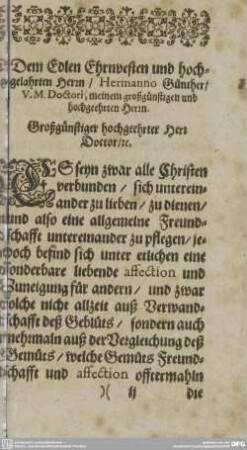 Dem Edlen Ehrnvesten und hoch-
gelahrten Herrn / Hermanno Günther /
V. M. Doctori, meinem großgünstigen und
hochgeehrten Herrn.
Großgünstiger hochgeehrter Herr
Doctor / ꝛc.
ES seyn zwar alle Christen
verbunden / sich unterein-
ander zu lieben / zu dienen /
unnd also eine allgemeine Freund-
schafft untereinander zu pflegen / je-
doch befind sich unter etlichen eine
sonderbare liebende affection und
Zuneigung für andern / und zwar
solche nicht allzeit auß Verwand-
schafft deß Geblüts / sondern auch
mehrmaln auß der Vergleichung deß
Gemüts / welche Gemüts Freund-
schafft und affection offtermahln
)( ij die